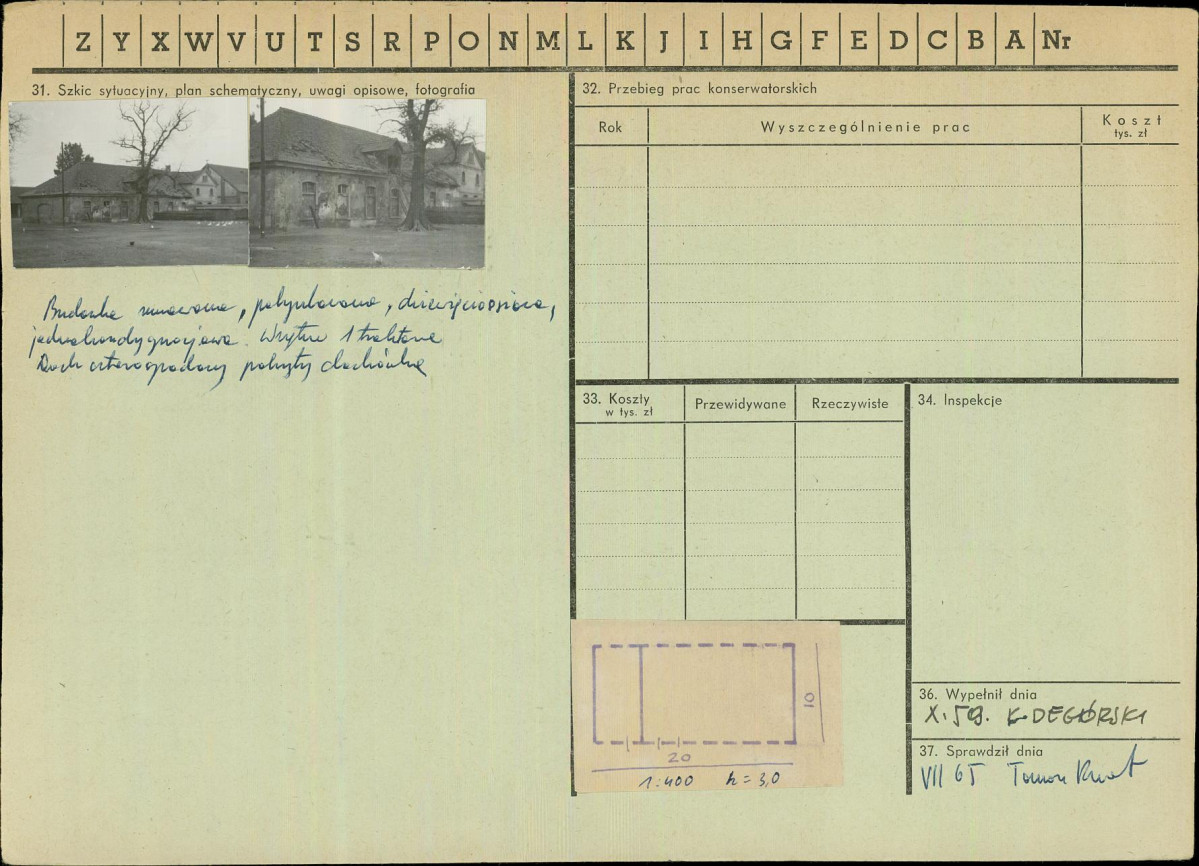 Z Y X W V U T S R P O N M L K J I H G F E D C B A Nr
31. Szkic sytuacyjny, plan schematyczny, uwagi opisowe, fotografia
Budynek murowany, potynkowana, dziewięcioosiowa,
jednokondygnacyjowa. Wnętrze 1 traktowe
Dach czterospadowy pokryty dachówką
32. Przebieg prac konserwatorskich
Rok
Wyszczególnienie prac
Koszt
tys. zł
33. Koszty
w tys. zł
Przewidywane
Rzeczywiste
34. Inspekcje
10
20
1:400 h = 3,0
36. Wypełnił dnia
X. 59. K. DEGÓRSKI
37. Sprawdził dnia
VII 65